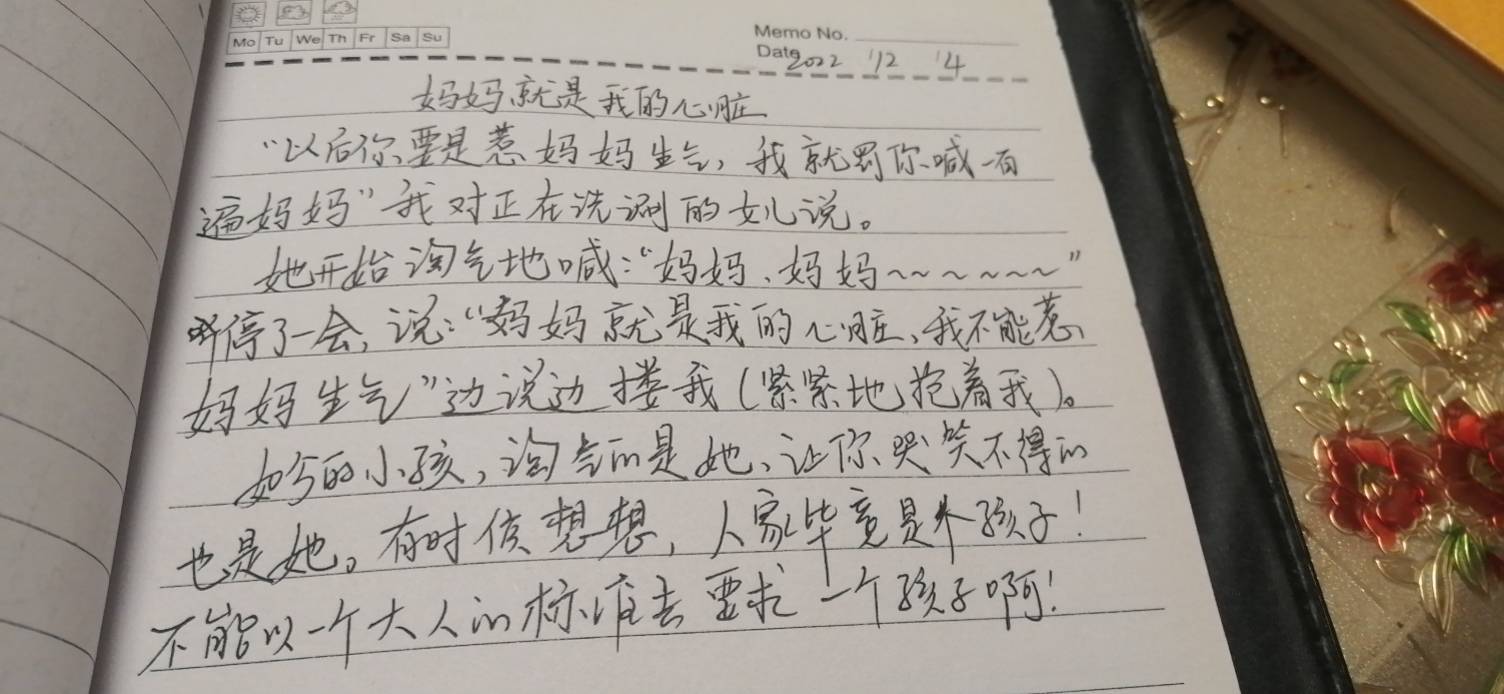 Mo Tu We Th Fr Sa Su
Memo No.
Date 2022 '12 '4
妈妈就是我的心脏
“以后你要是惹妈妈生气，我就罚你喊一百
遍妈妈”我对正在洗涮的女儿说。
她开始淘气地喊：“妈妈、妈妈～～～～～～”
停了一会，说：“妈妈就是我的心脏，我不能惹
妈妈生气”边说边搂我（紧紧地抱着我）。
如今的小孩，淘气的是她、让你哭笑不得的
也是她。有时候想想，人家毕竟是个孩子！
不能以一个大人的标准去要求一个孩子啊！